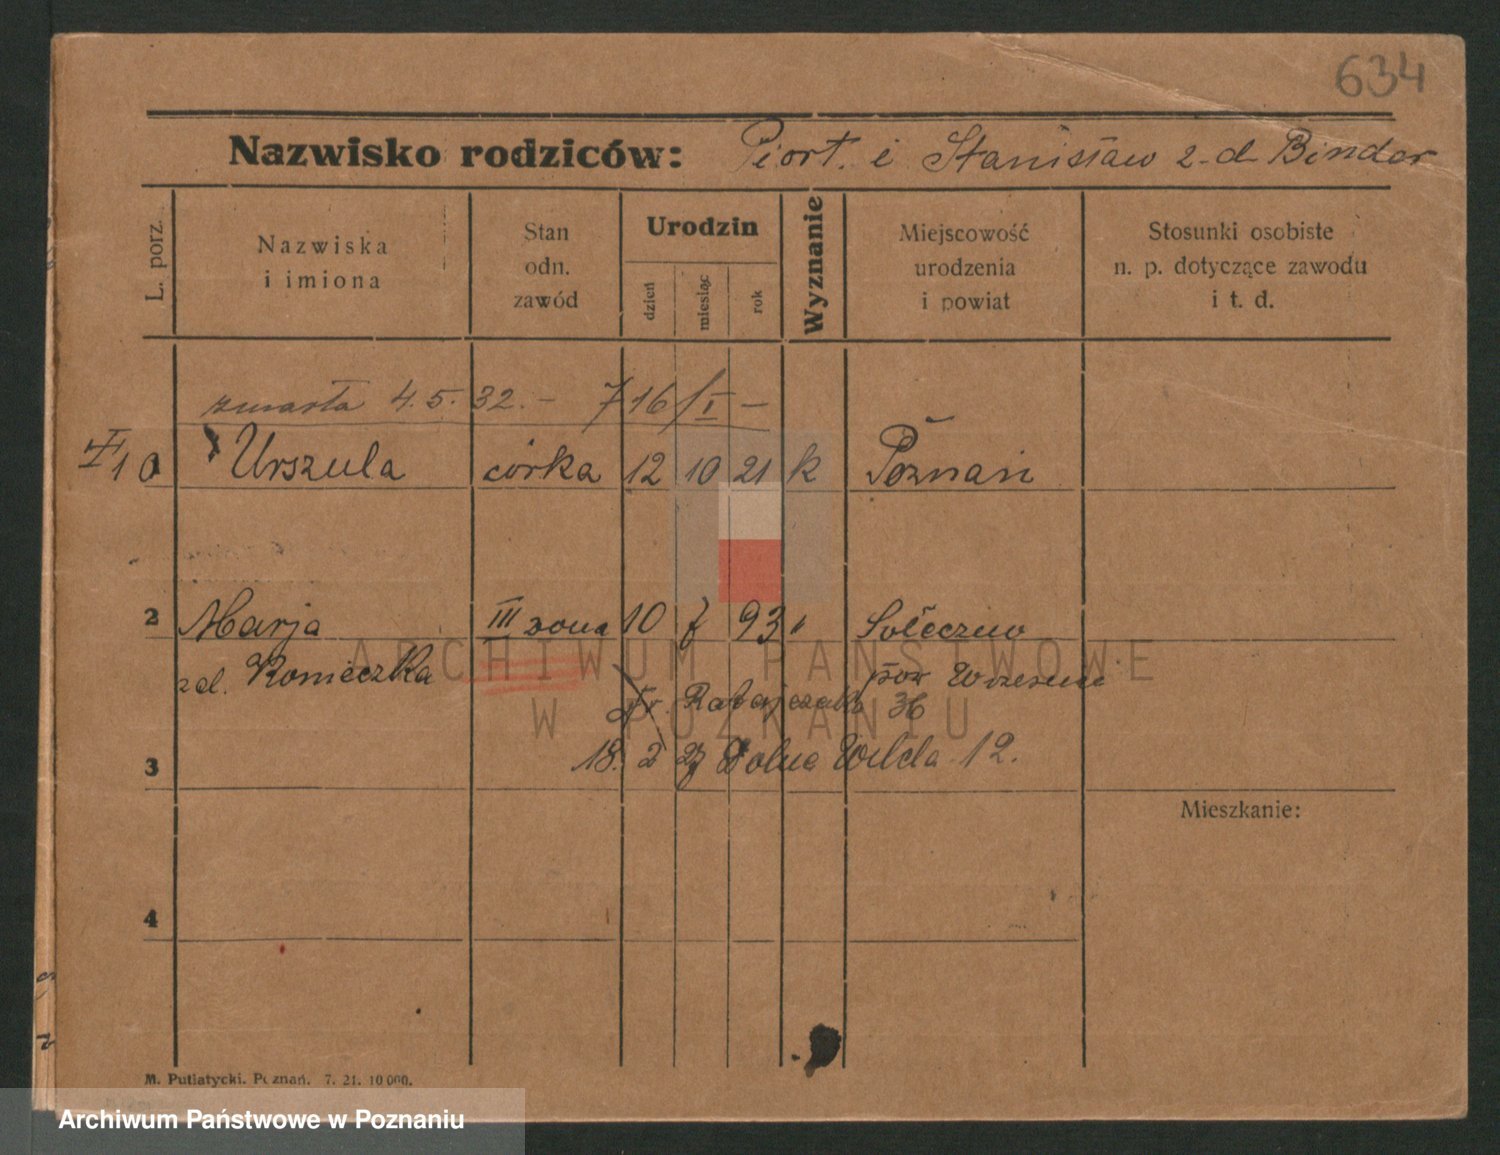 634
Nazwisko rodziców: Piort. i Stanisław z-d Binder
L. porz.
Nazwiska i imiona
Stan odn. zawód
Urodzin
dzień miesiąc rok
Wyznanie
Miejscowość urodzenia i powiat
Stosunki osobiste n. p. dotyczące zawodu i t. d.
zmarła 4.5.32. - 716/I -
Urszula córka 12 10 21 k Poznań
2 Marja III żona 10 7 93 "
zd. Konieczka
Fr. Ratajczaka 36
3 18. 2 27 Dolna Wilda 12.
Mieszkanie:
4
M. Putiatycki. Poznań. 7. 21. 10 000.
ARCHIWUM PAŃSTWOWE
W POZNANIU
Archiwum Państwowe w Poznaniu